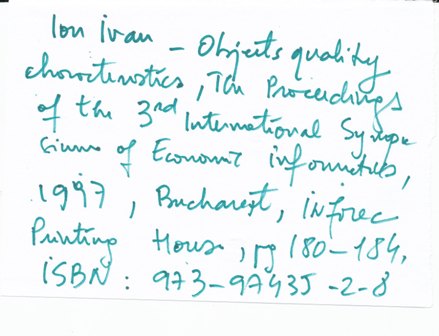 Ion Ivan – Objects quality
characteristics, The Proceedings
of the 3rd International Sympo
sium of Economic informatics,
1997, Bucharest, inforec
Printing House, pg 180–184,
iSBN: 973–97435 -2-8